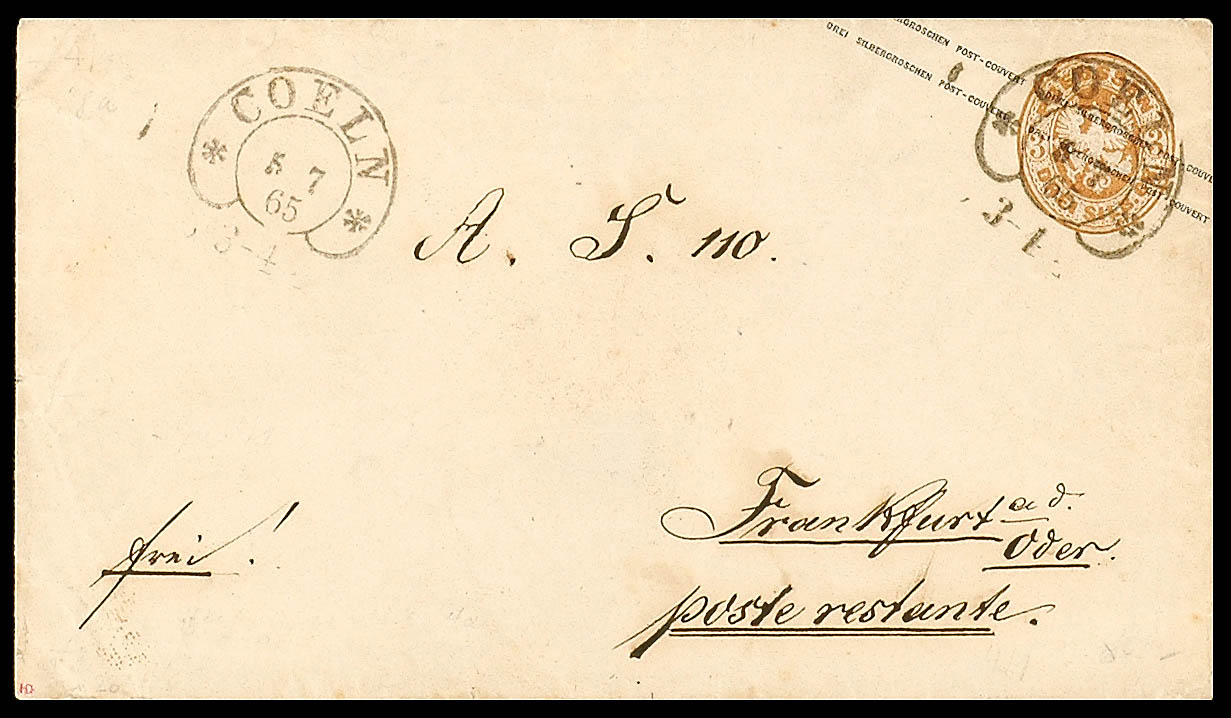 DREI SILBERGROSCHEN POST-COUVERT
DREI SILBERGROSCHEN POST-COUVERT
DREI SILBERGROSCHEN POST-COUVERT
COELN
5 7
65
3-4
COELN
3-4
3
3
A. S. 110.
Frankfurt a d.
Oder.
poste restante.
frei!